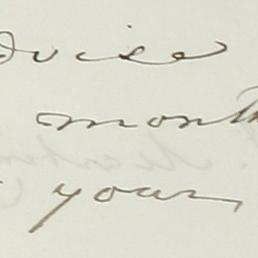 dvise
month
your